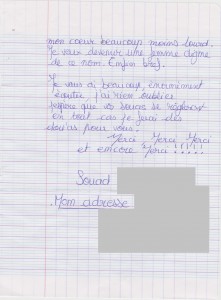 mon coeur beaucoup moins lourd.
Je vais devenir une femme digne
de ce nom. Enfin bref.
Je vous ai beaucoup, énormément
écoutée, j'ai rien oublier
j'espère que vos soucis se règleront
en tout cas je ferai des
douas pour vous.
Merci Merci Merci
et encore Merci !!!!!
Souad
Mon adresse